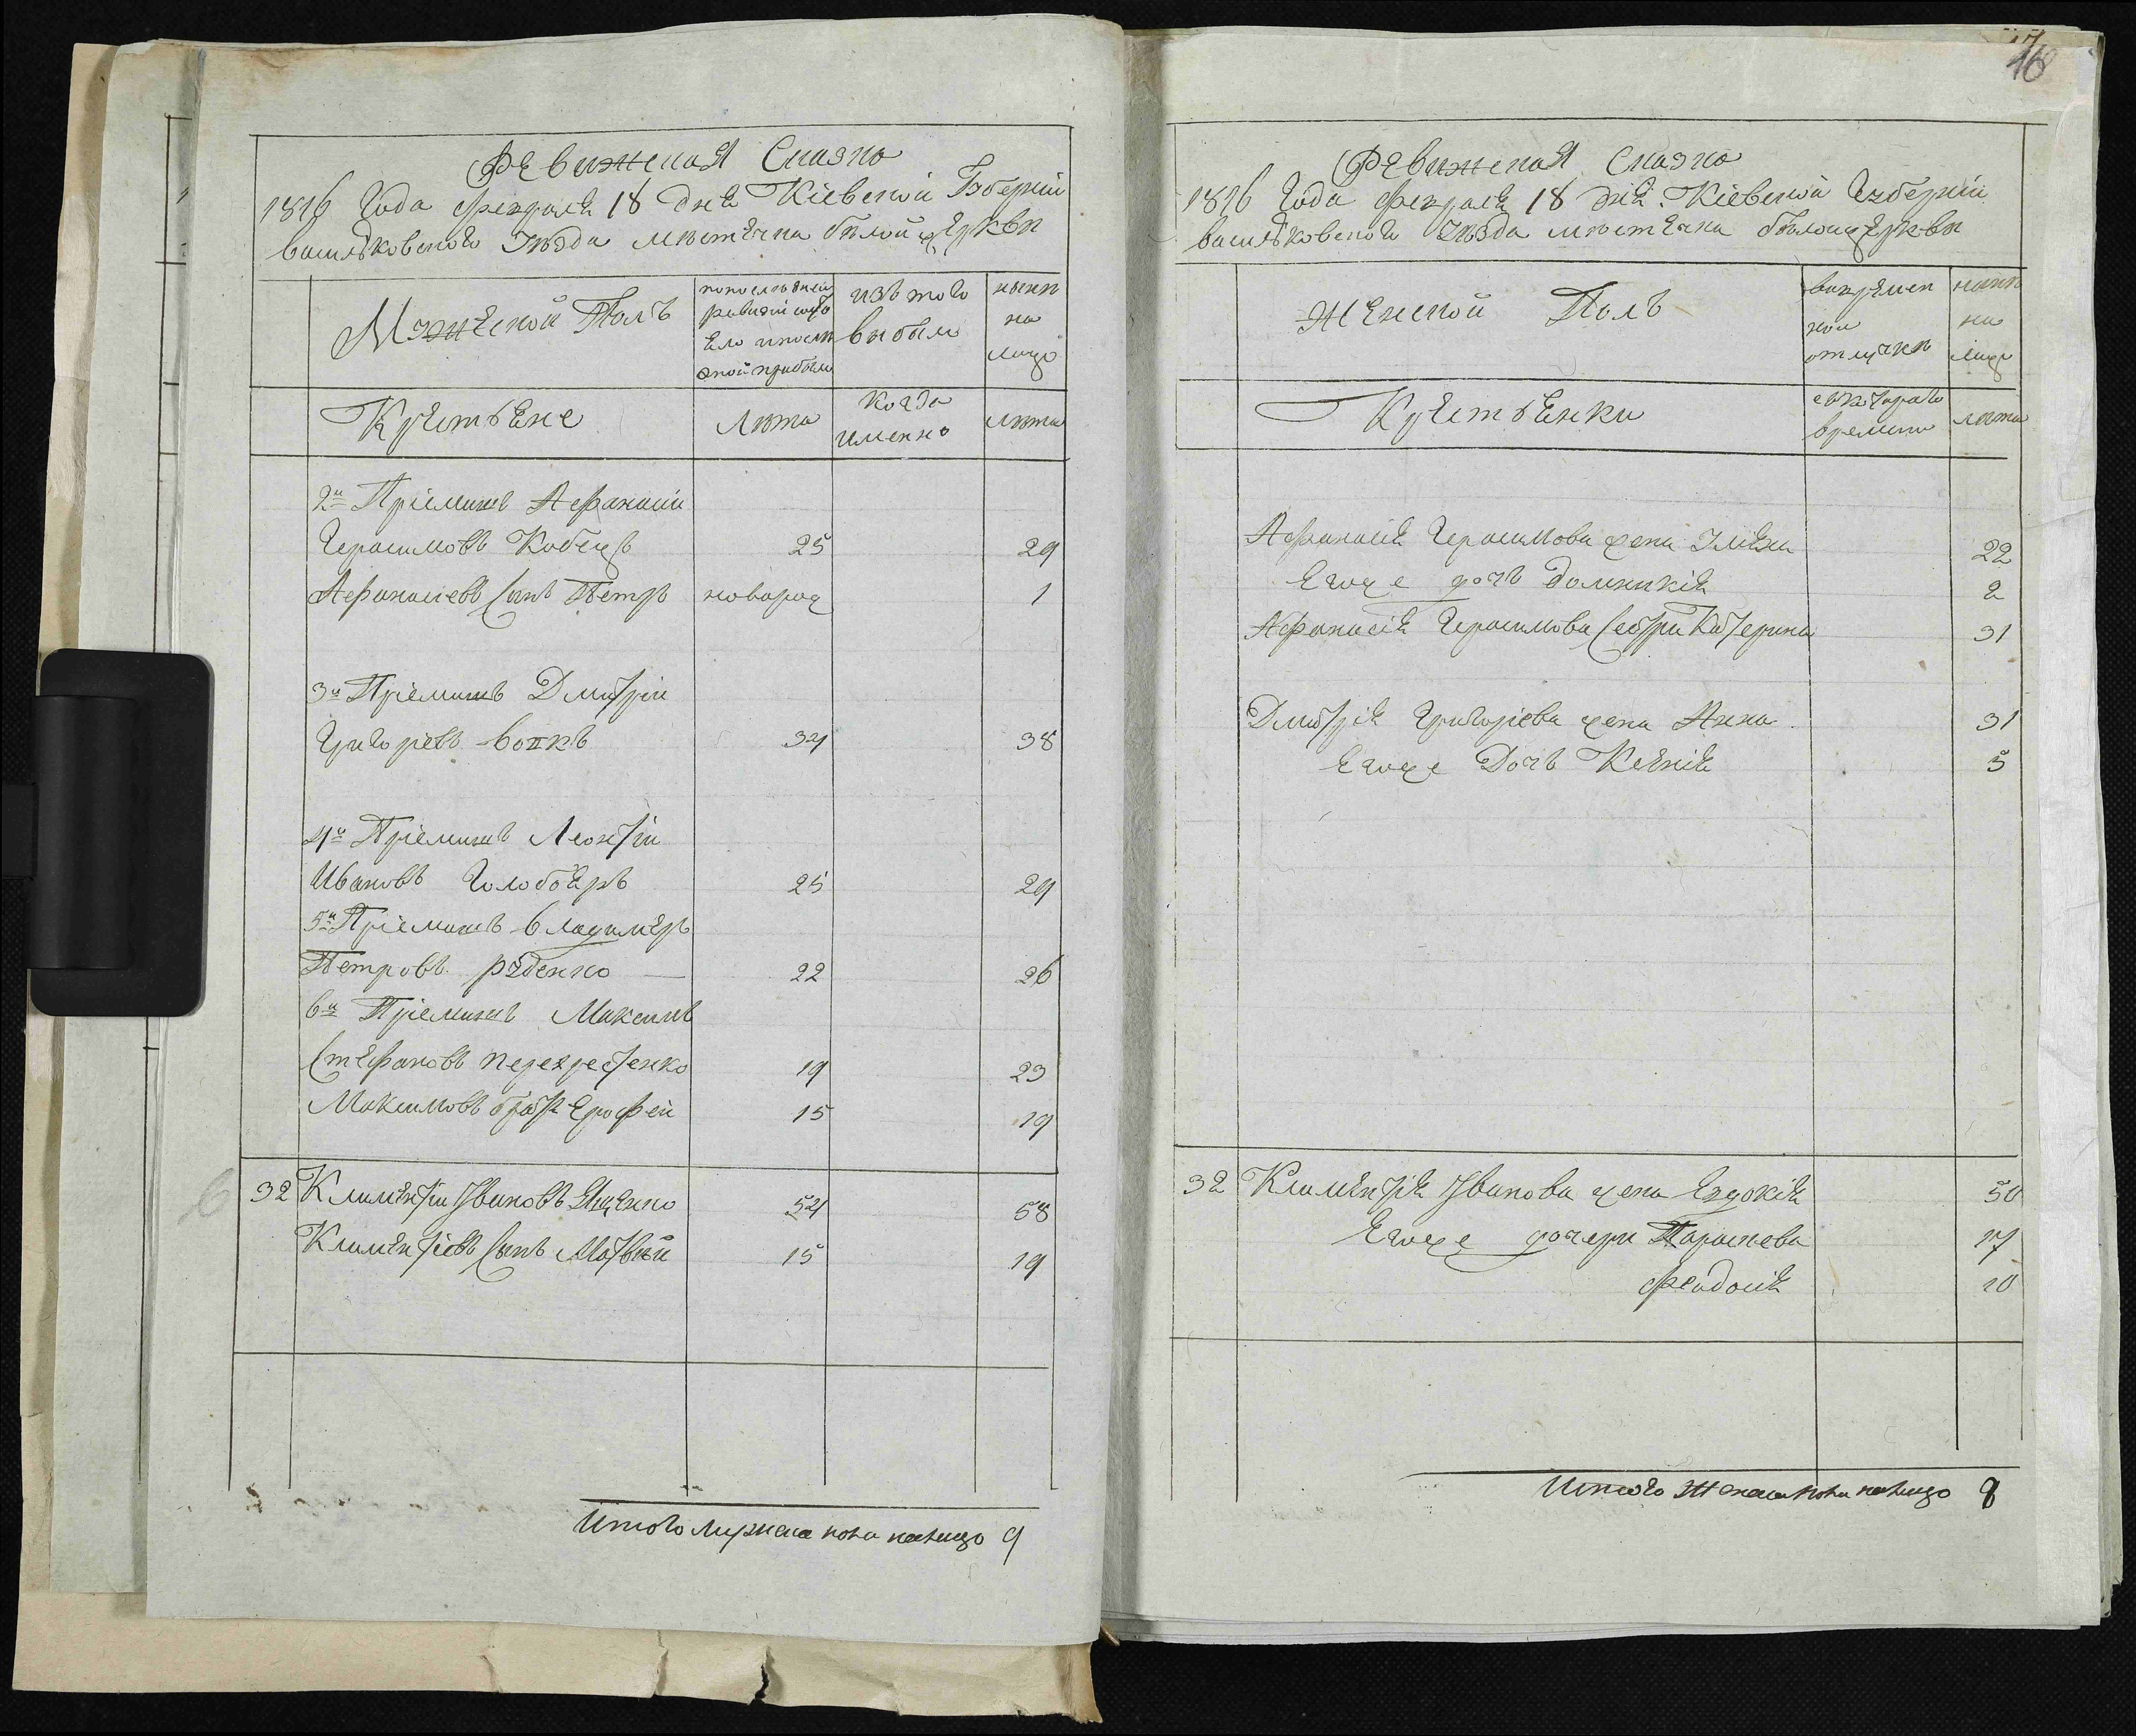 Ревижская Сказка
1816 Года Февраля 18 дня Кіевской Губерніи
васильковского Уезда мѣстечка белой церкви
Мужеской Полъ
попоследней
ревизіи состо
яло ипосли
оной прибыло
изъ того
выбыло
нынѣ
на
лицо
Крестьяне
Лѣта
когда
именно
лѣта
2й Пріймакъ Афанасій
Герасимовъ Кобецъ 25 29
Афанасіевъ Сынъ Петръ новорож 1
3й Пріймакъ Дмитрій
Григоріевъ вовкъ 34 38
4й Пріймакъ Леонтій
Ивановъ Голобояръ 25 29
5й Пріймакъ владимѣръ
Петровъ руденко 22 26
6й Пріймакъ Максимъ
Стефановъ перехрестенко 19 23
Максимовъ братъ Ерофей 15 19
32 Климентій Ивановъ Яценко 54 58
Климентіевъ Сынъ Матвѣй 15 19
Итого мужеска пола налицо 9
16
Ревижская Сказка
1816 Года Февраля 18 дня Кіевской Губерніи
васильковского Уезда мѣстечка белоицеркви
Женской Полъ
вовремен
ной
отлучки
нынѣ
на
лицо
Крестьянки
скотораго
времени
лѣта
Афанасія Герасимова жена Уляна 22
Егоже дочь Домникія 2
Афанасія Герасимова Сестра Катерина 31
Дмитрія Григоріева жена Анна 31
Егоже Дочь Ксенія 5
32 Климентія Иванова жена Евдокія 50
Егоже дочери Параскева 17
Феодосія 10
Итого женска пола налицо 8